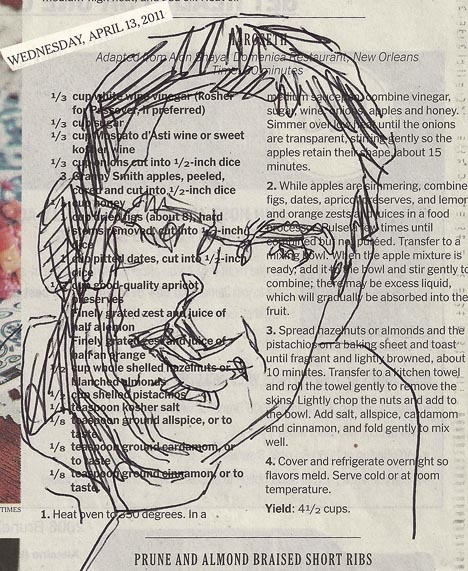 WEDNESDAY, APRIL 13, 2011
HAROSETH
Adapted from Alon Shaya, Domenica Restaurant, New Orleans
Time: 30 minutes
1/3 cup white wine vinegar (Kosher
for Passover, if preferred)
1/3 cup sugar
1/3 cup Moscato d'Asti wine or sweet
kosher wine
1/3 cup onions cut into 1/2-inch dice
3 Granny Smith apples, peeled,
cored and cut into 1/2-inch dice
cup honey
1 cup dried figs (about 8), hard
stems removed, cut into 1/2-inch
dice
1 cup pitted dates, cut into 1/2-inch
dice
1/2 cup good-quality apricot
preserves
Finely grated zest and juice of
half a lemon
Finely grated zest and juice of
half an orange
1/2 cup whole shelled hazelnuts or
blanched almonds
1/2 cup shelled pistachios
1 teaspoon kosher salt
1/8 teaspoon ground allspice, or to
taste
1/8 teaspoon ground cardamom, or
to taste
1/8 teaspoon ground cinnamon, or to
taste.
1. Heat oven to 350 degrees. In a
medium saucepan, combine vinegar,
sugar, wine, onions, apples and honey.
Simmer over low heat until the onions
are transparent, stirring gently so the
apples retain their shape, about 15
minutes.
2. While apples are simmering, combine
figs, dates, apricot preserves, and lemon
and orange zests and juices in a food
processor. Pulse a few times until
combined but not puréed. Transfer to a
mixing bowl. When the apple mixture is
ready, add it to the bowl and stir gently to
combine; there may be excess liquid,
which will gradually be absorbed into the
fruit.
3. Spread hazelnuts or almonds and the
pistachios on a baking sheet and toast
until fragrant and lightly browned, about
10 minutes. Transfer to a kitchen towel
and roll the towel gently to remove the
skins. Lightly chop the nuts and add to
the bowl. Add salt, allspice, cardamom
and cinnamon, and fold gently to mix
well.
4. Cover and refrigerate overnight so
flavors meld. Serve cold or at room
temperature.
Yield: 4 1/2 cups.
TIMES
PRUNE AND ALMOND BRAISED SHORT RIBS